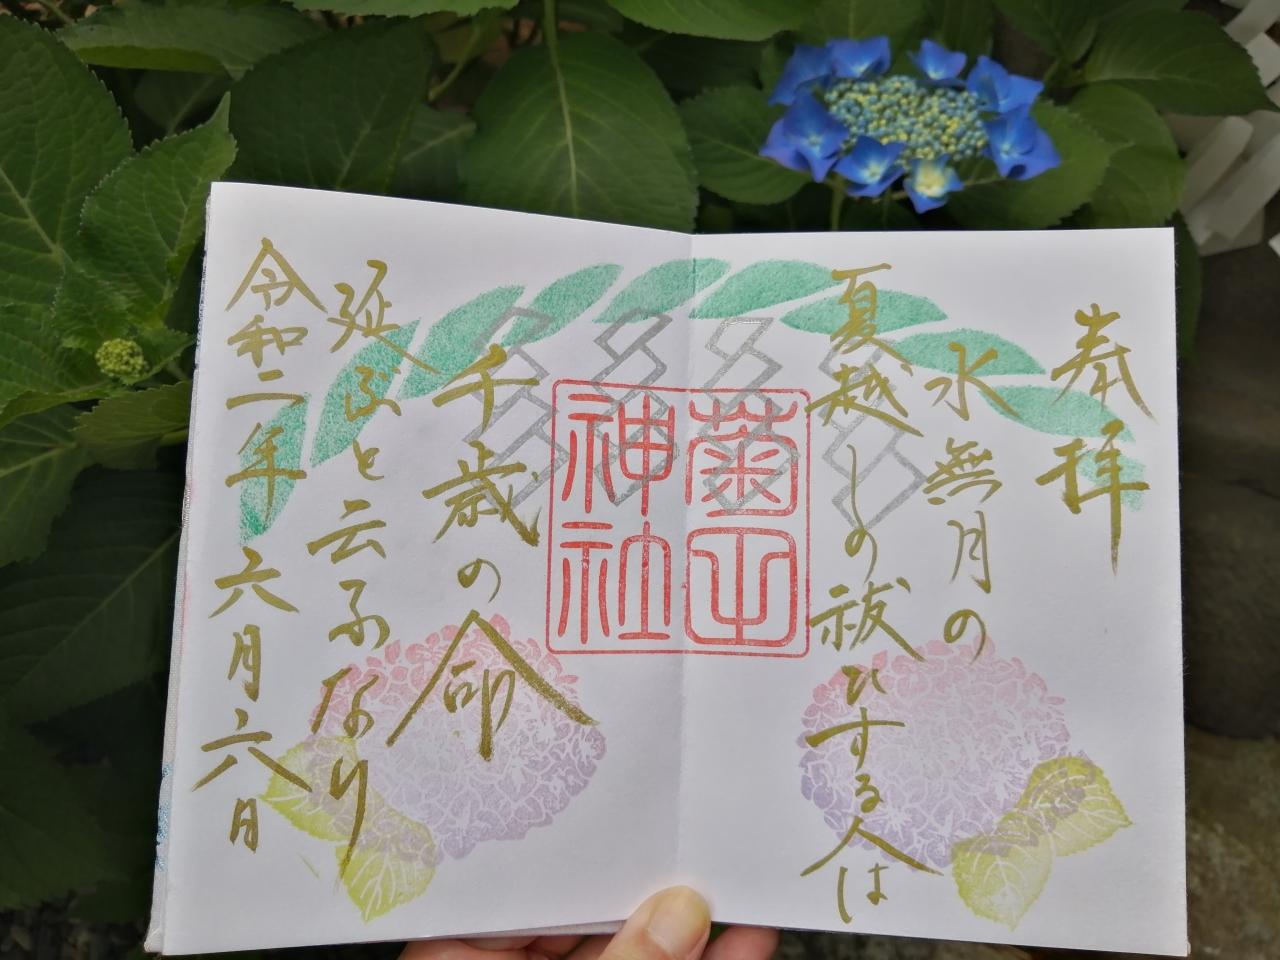 奉拝
水無月の
夏越しの祓ひする人は
菊田
神社
千歳の命
延ぶと云ふなり
令和二年 六月六日